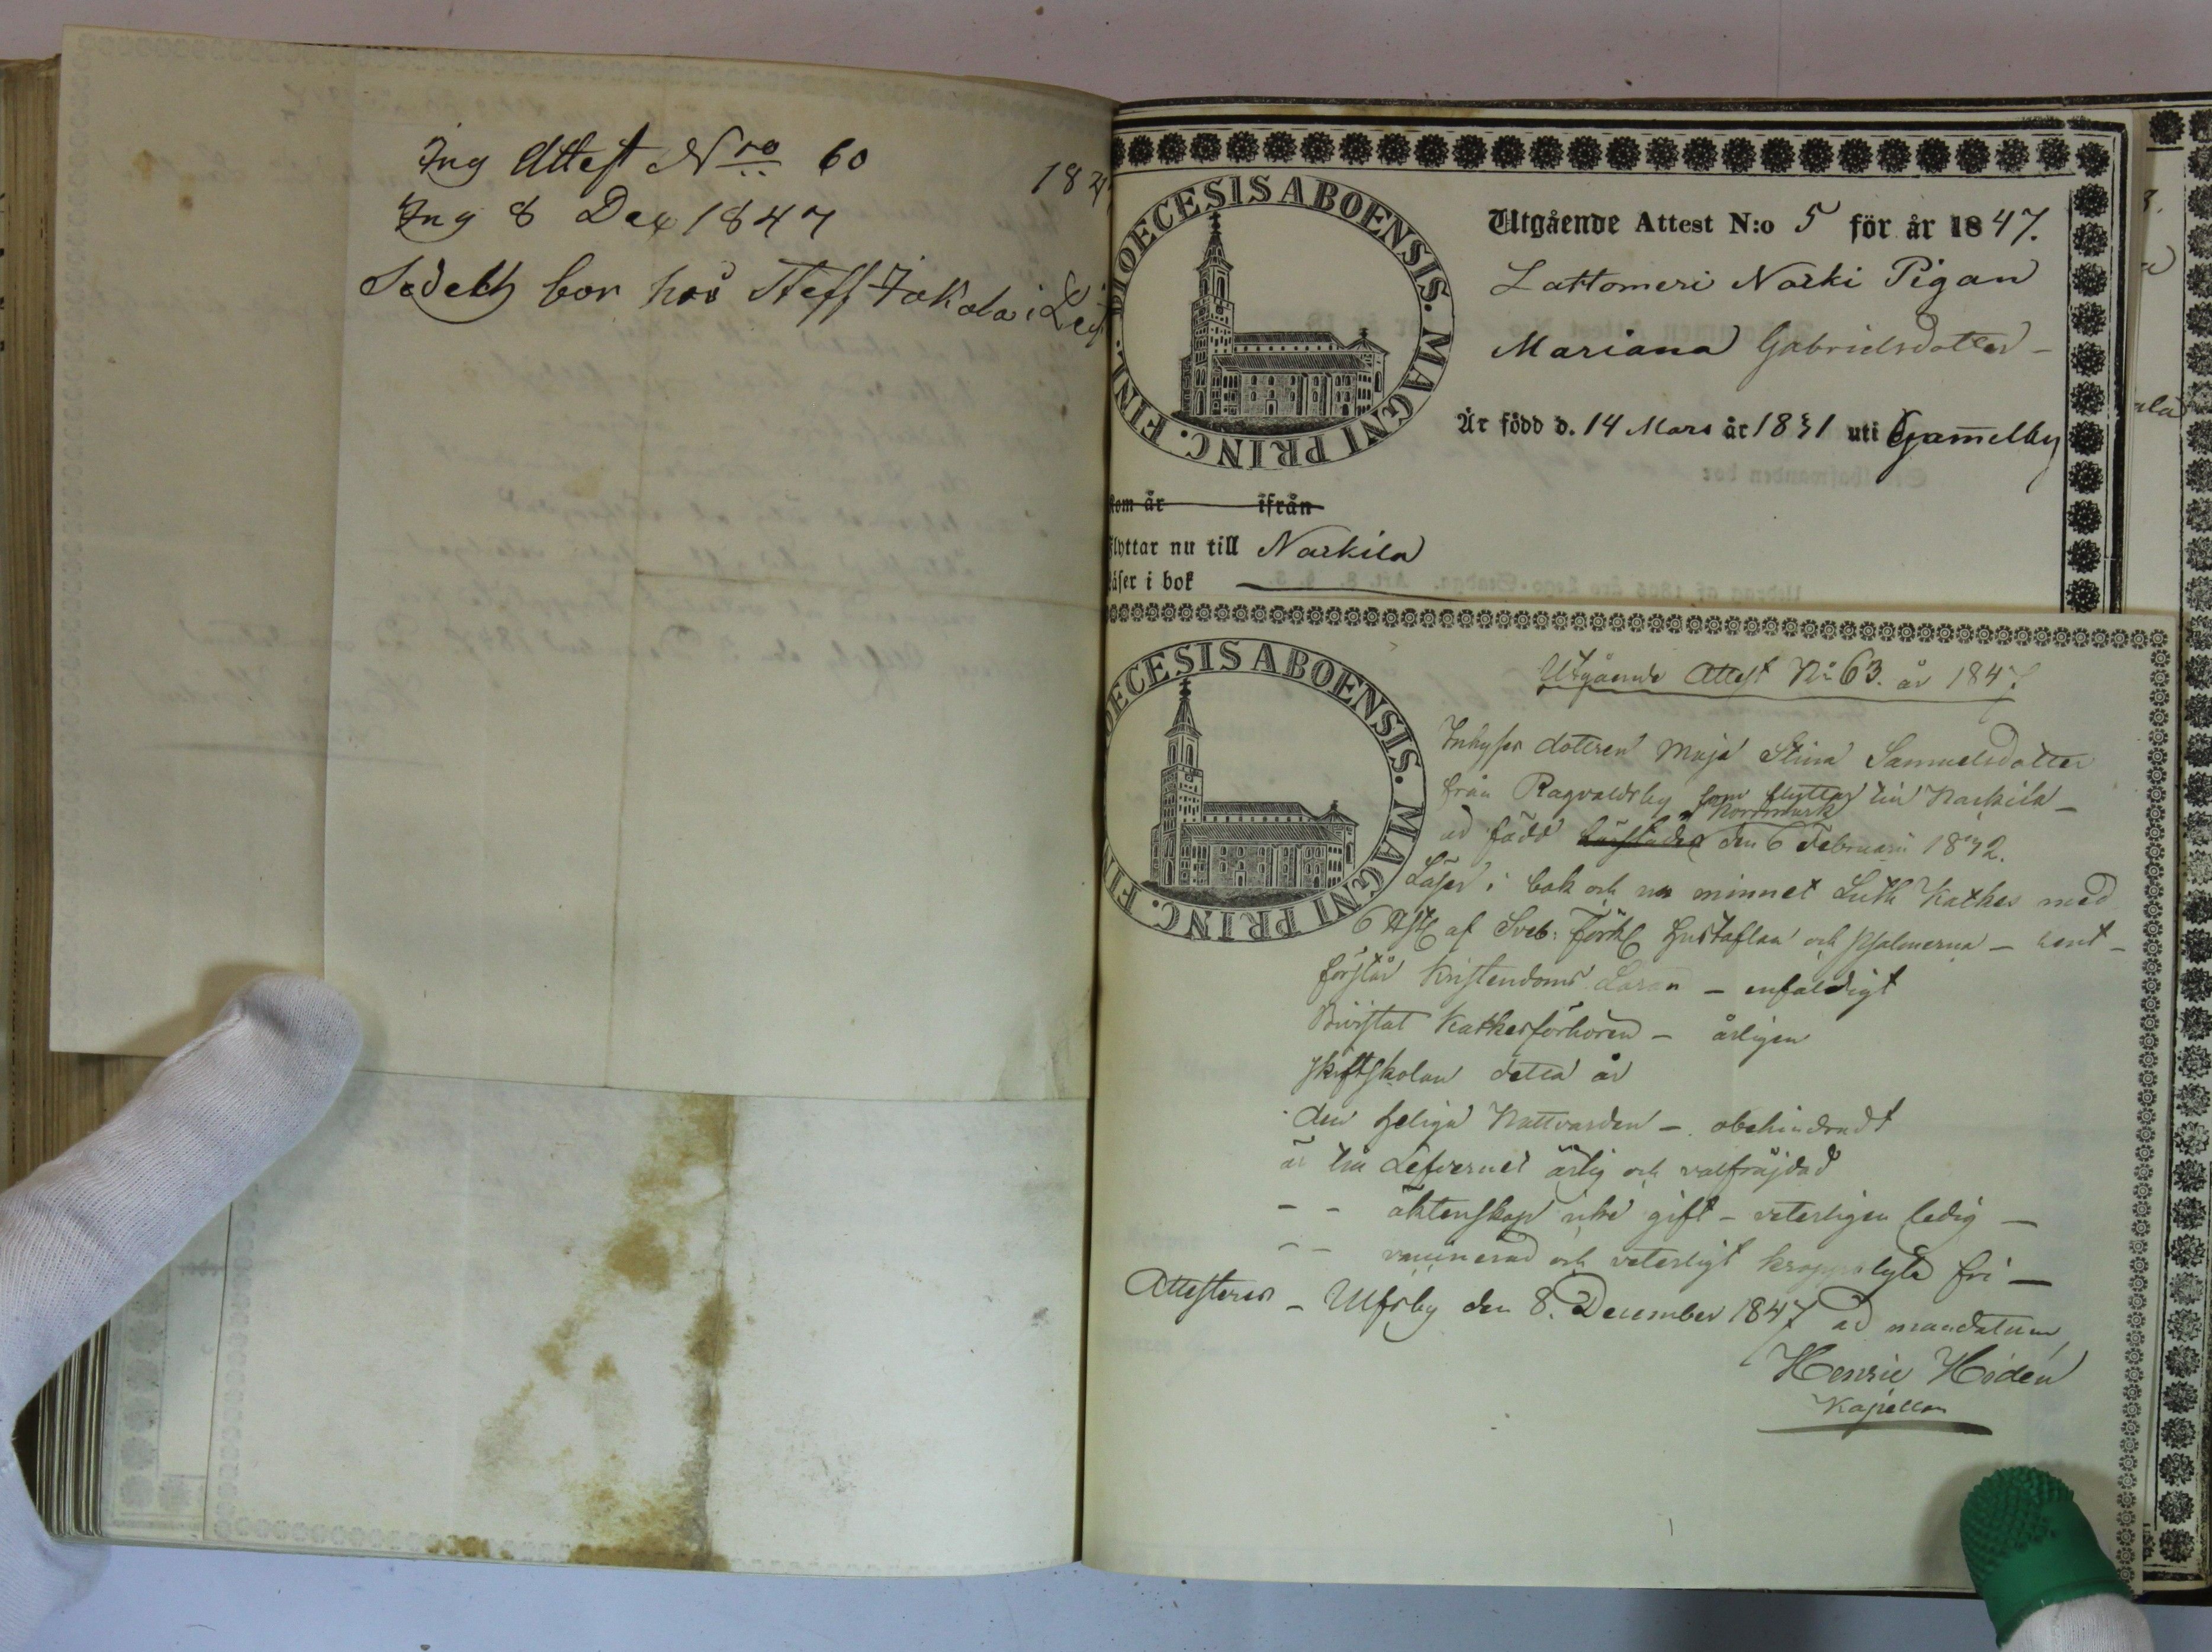 Ing Attest Nro 60
184
Ing 8 Dec 1847
bor hos Steff Jakola i
DIOECESIS ABOENSIS. MAGNI PRINC. FINL.
Utgående Attest N:o 5 för år 1847.
Lattomeri Narki Pigan
Mariana Gabrielsdotter –
Är född d. 14 Mars år 1831 uti Gam̅elby
kom år ifrån
flyttar nu till Narkila
läser i bok
DIOECESIS ABOENSIS. MAGNI PRINC. FINL.
Utgående Attest No 63. år 1847.
Inhyses dottren Maja Stina Samuelsdotter
från Ragvaldsby som flyttar till Narkila –
Norrmark
är född den 6 Februari 1832.
Läser i bok och ur minnet Luth Kathes med
af Sveb: Förkl Hustaflan och Psalmerna –
förstår Kristendoms Läran – enfaldigt
Bivistat Kathesförhören – årligen
Skriftskolan detta år
den heliga Nattvarden – obehindradt
är till Lefvernet ärlig och välfräjdad
– – äktenskap icke gift – veterligen ledig –
– – vaccinerad och veterligt kroppslyte fri –
Attesteras – Ulfsby den 8. December 1847 ad mandatum,
Henric Hidén
Kapellan